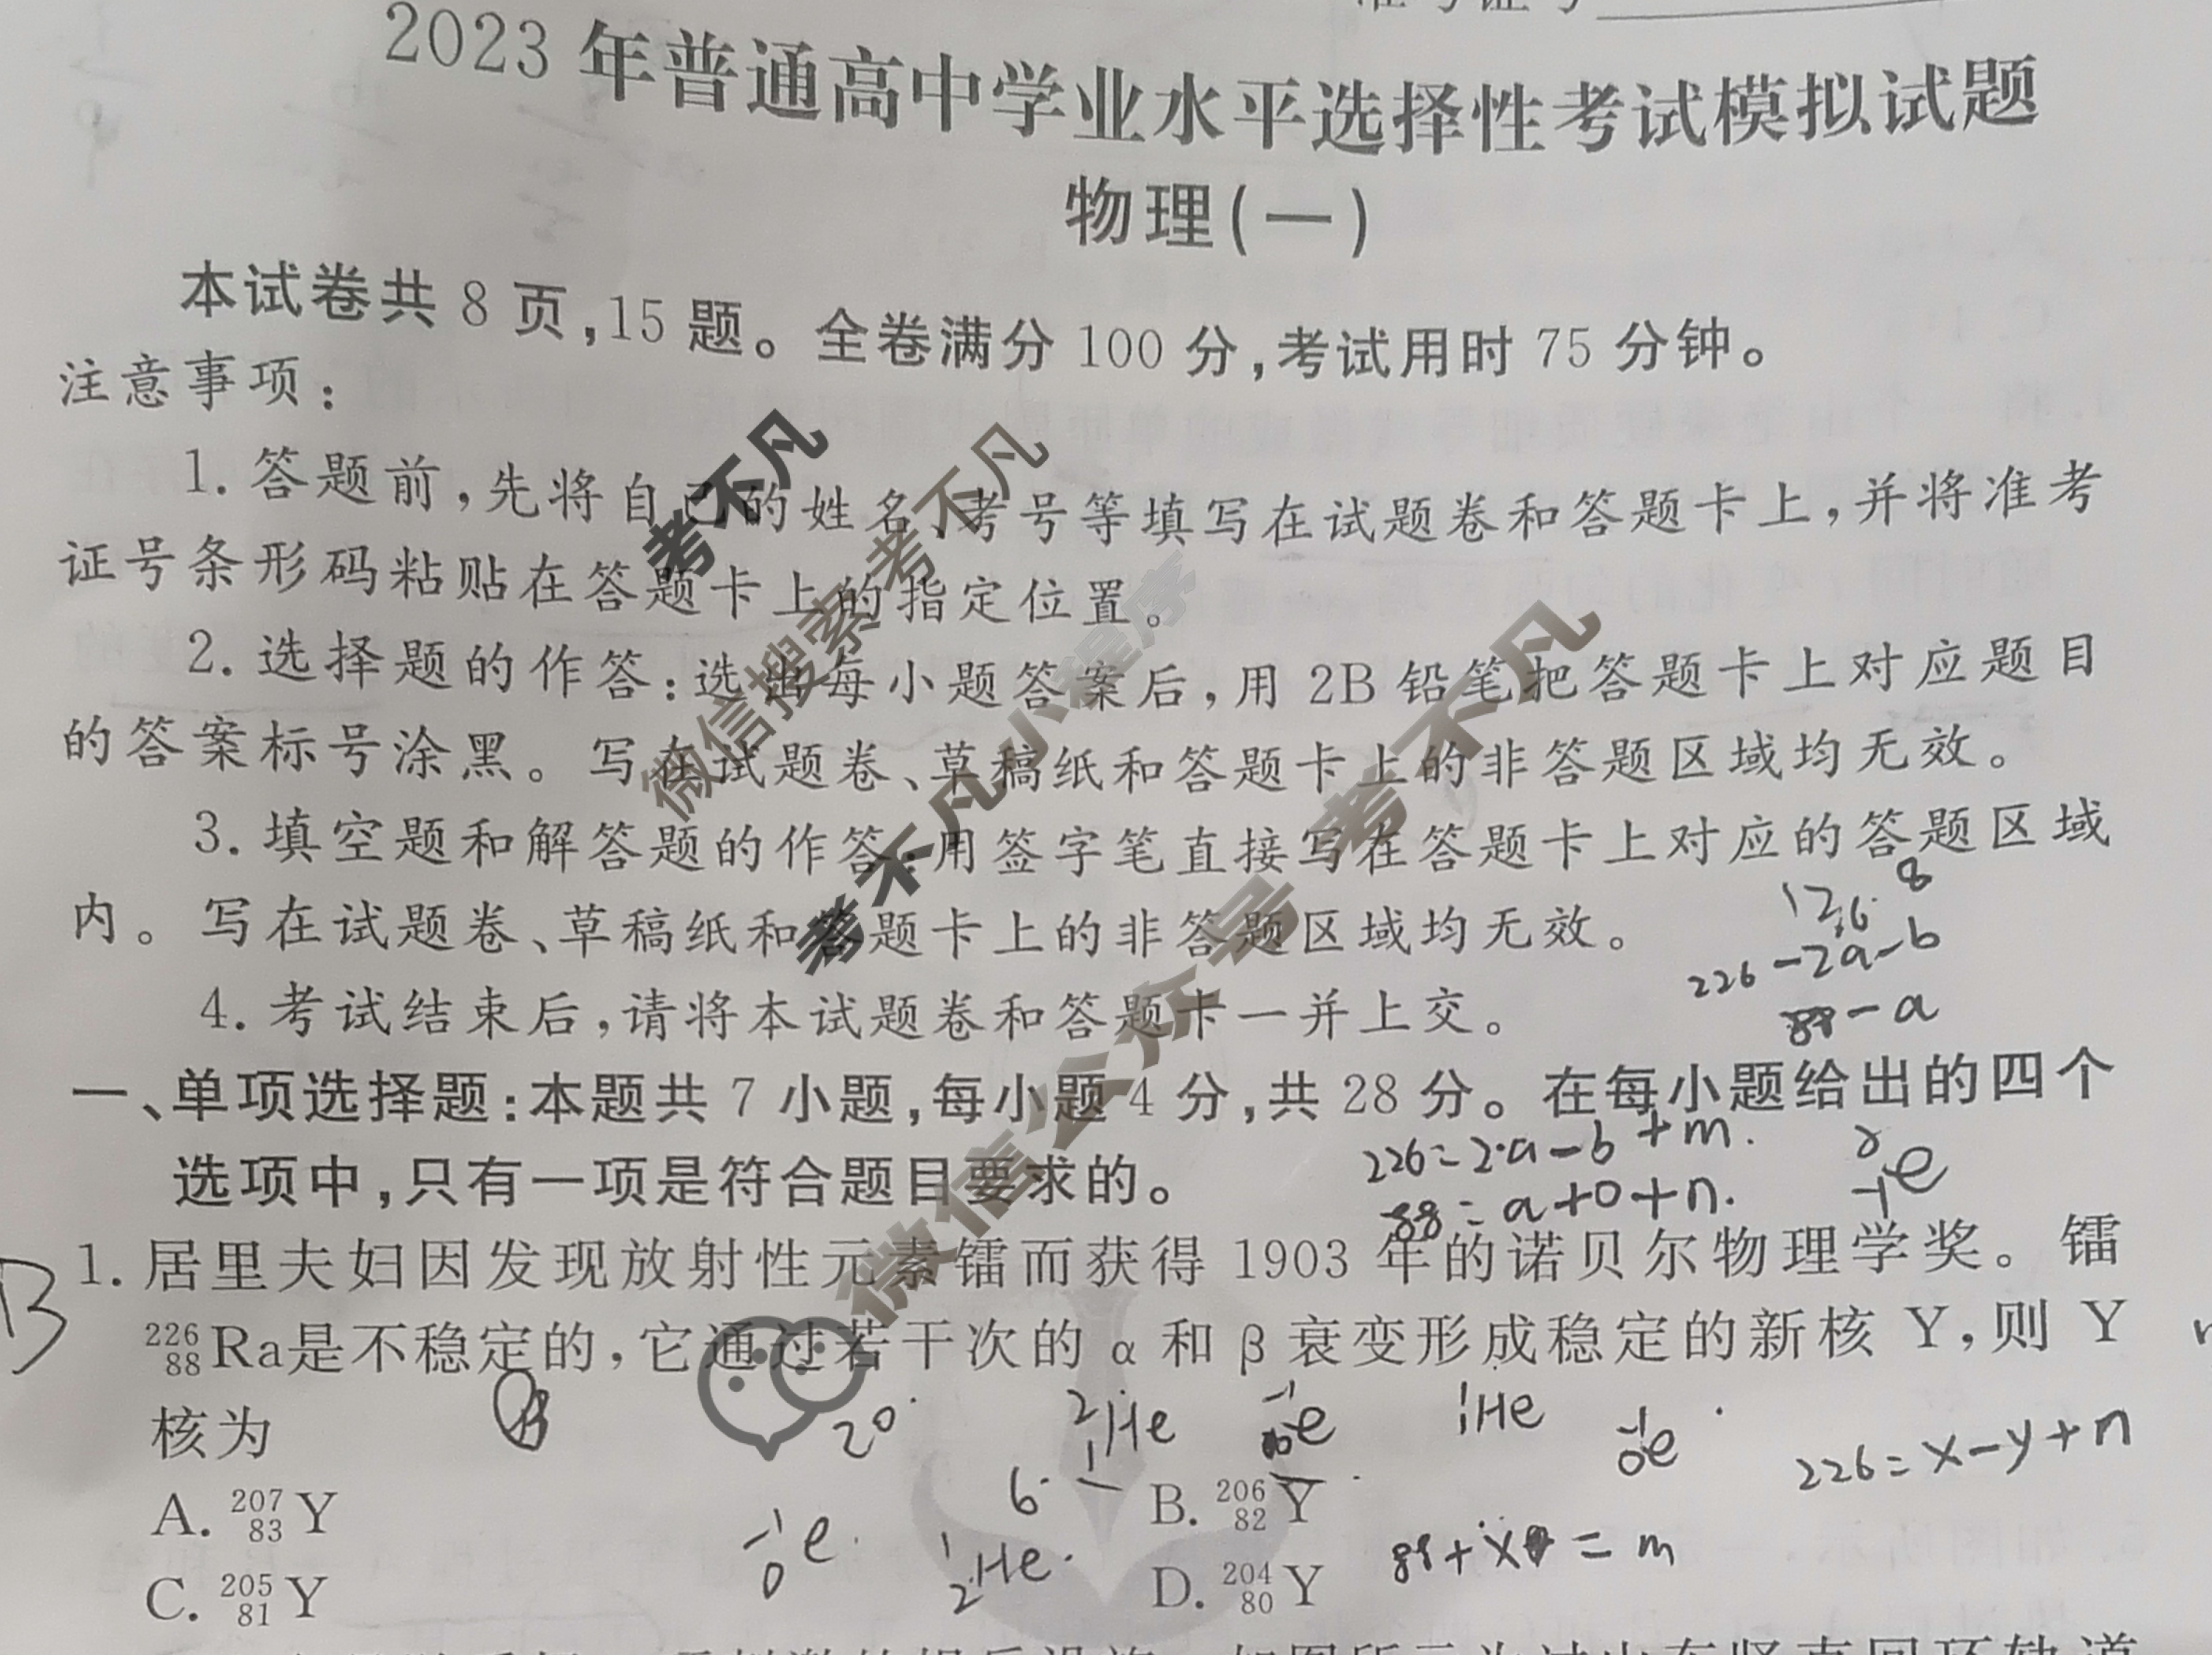 2023年普通高中学业水平选择性考试模拟试题
物理(一)
本试卷共8页,15题。全卷满分100分,考试用时75分钟。
注意事项:
1.答题前,先将自己的姓名、考号等填写在试题卷和答题卡上,并将准考
证号条形码粘贴在答题卡上的指定位置。
2.选择题的作答:选出每小题答案后,用2B铅笔把答题卡上对应题目
的答案标号涂黑。写在试题卷、草稿纸和答题卡上的非答题区域均无效。
3.填空题和解答题的作答:用签字笔直接写在答题卡上对应的答题区域
内。写在试题卷、草稿纸和答题卡上的非答题区域均无效。
226-2a-b
88-a
4.考试结束后,请将本试题卷和答题卡一并上交。
一、单项选择题:本题共7小题,每小题4分,共28分。在每小题给出的四个
226=2·a-b+m.
选项中,只有一项是符合题目要求的。
88=a+0+n.
B
1.居里夫妇因发现放射性元素镭而获得1903年的诺贝尔物理学奖。镭
²²⁶₈₈Ra是不稳定的,它通过若干次的α和β衰变形成稳定的新核Y,则Y
核为
20
226=x-y+n
A. ²⁰⁷₈₃Y
B. ²⁰⁶₈₂Y
C. ²⁰⁵₈₁Y
D. ²⁰⁴₈₀Y
考不凡
微信搜索考不凡
考不凡小程序
微信公众号 考不凡